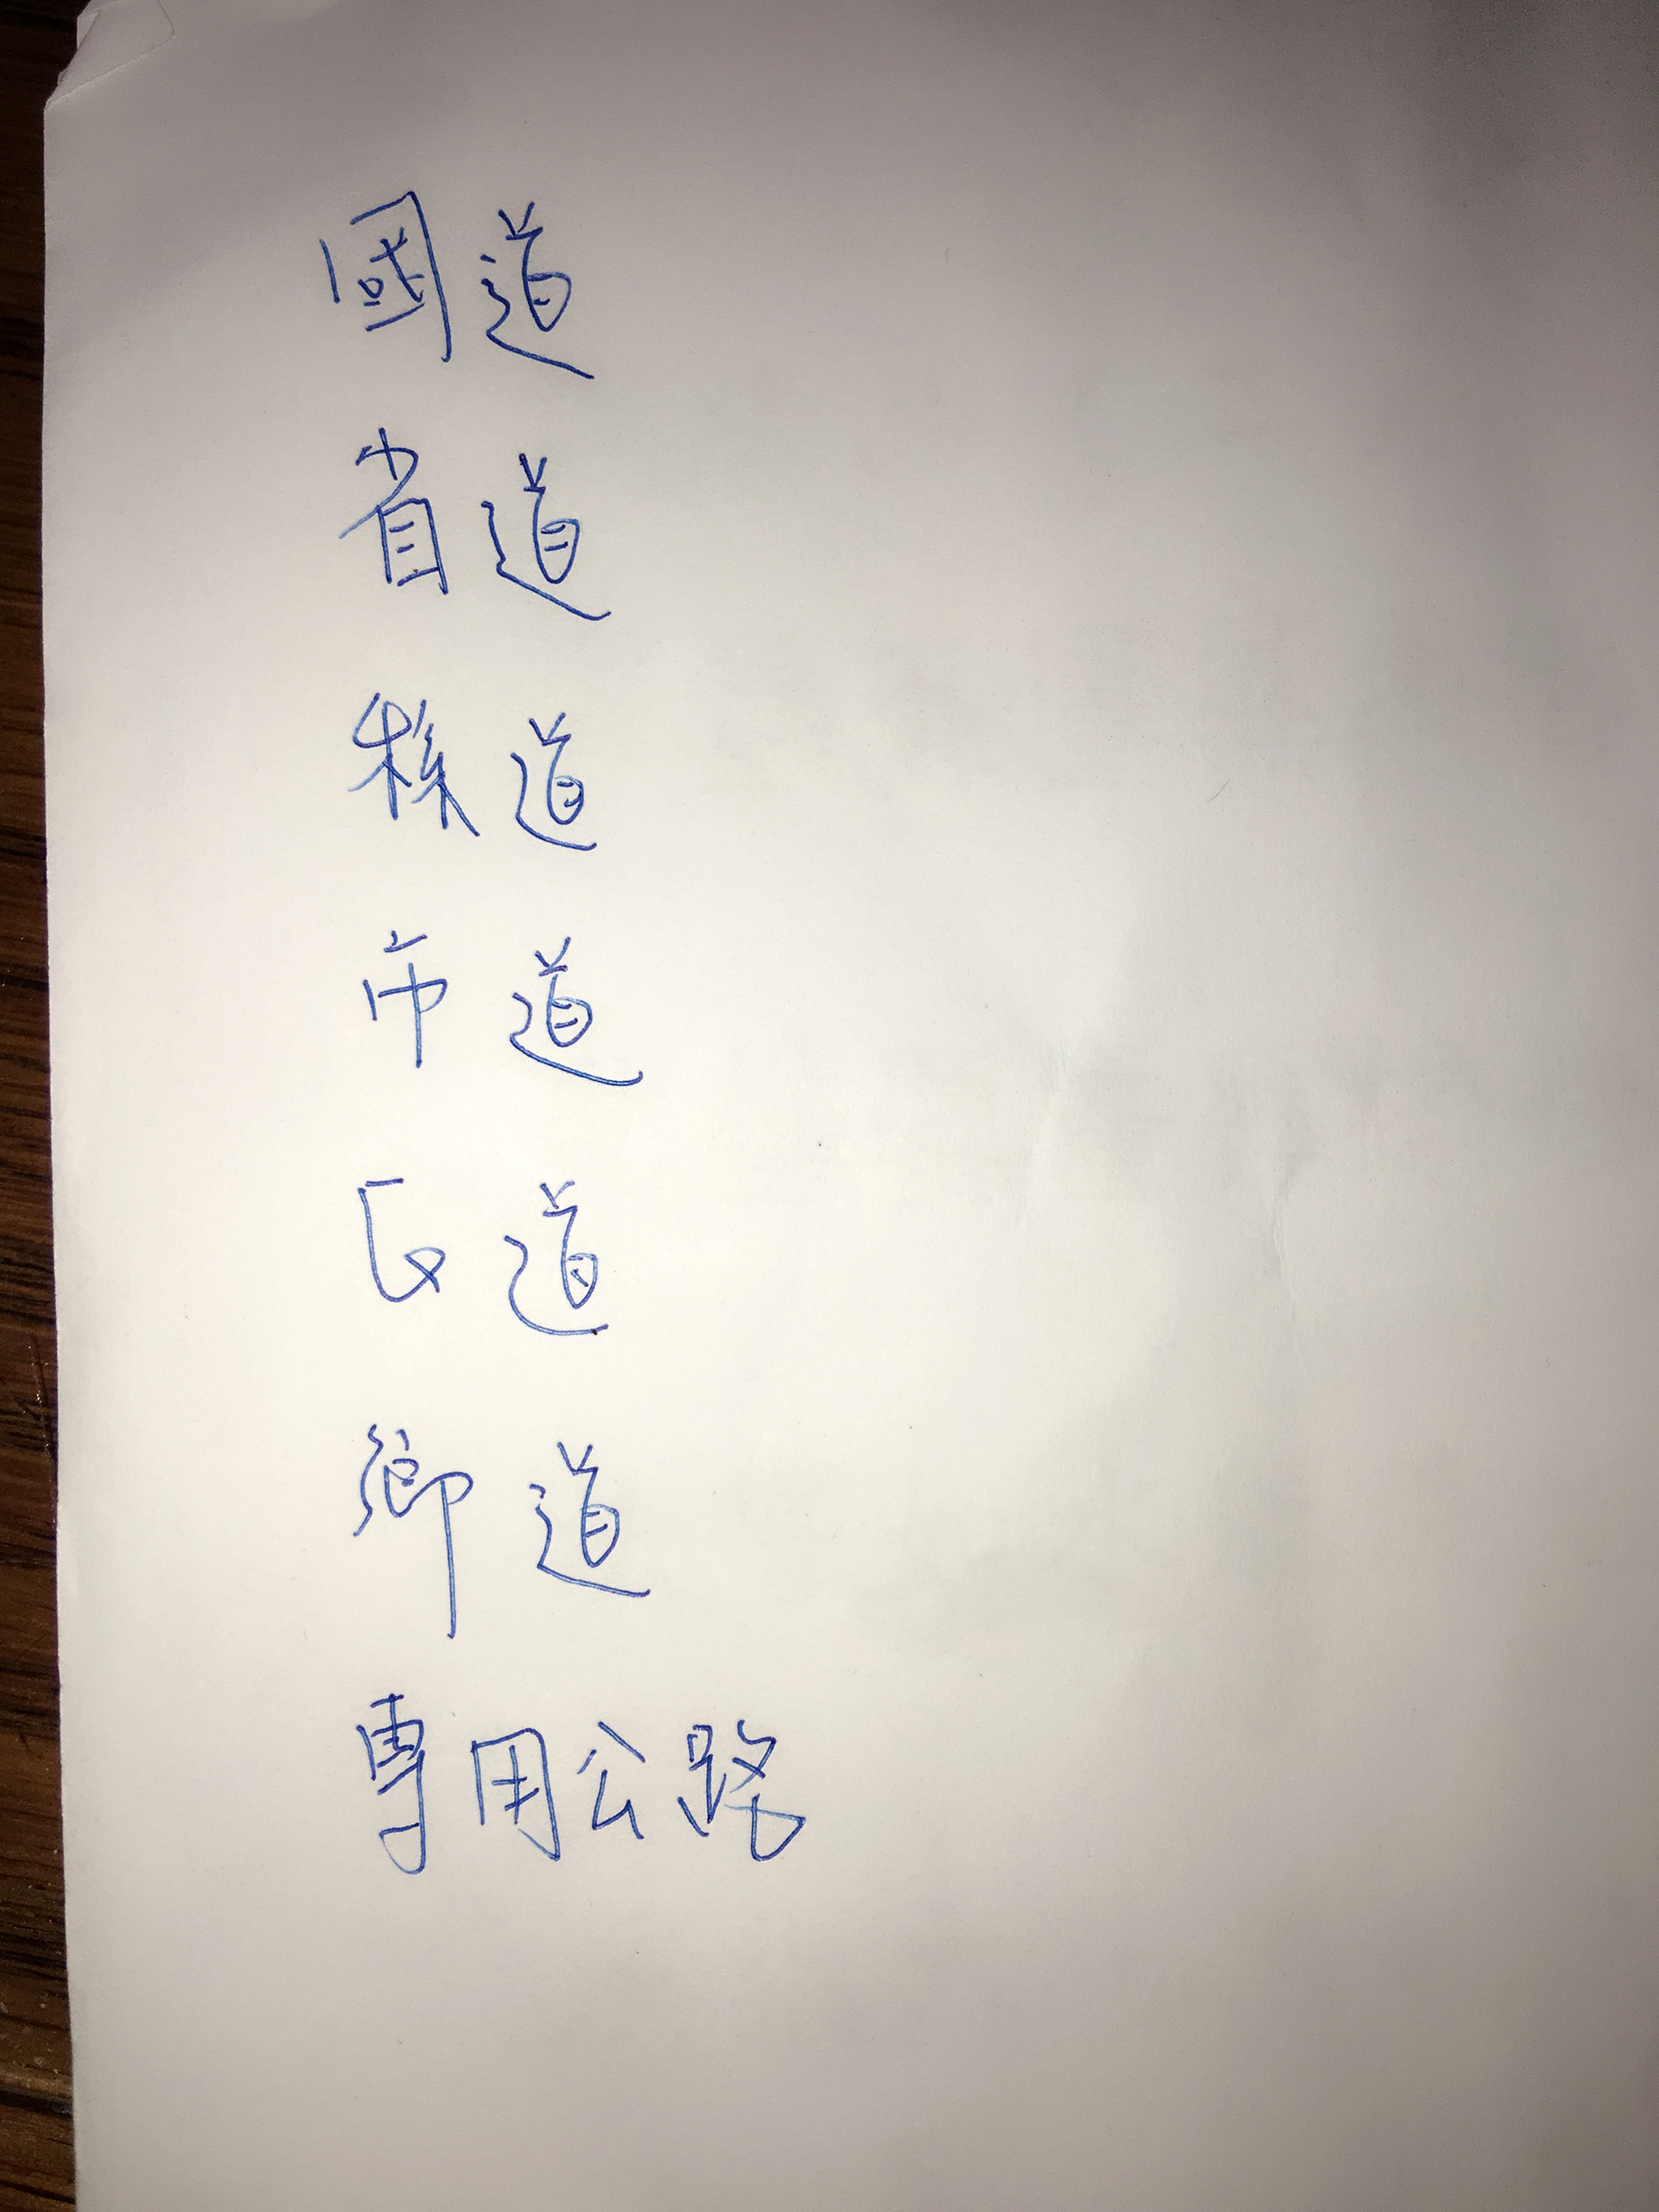 國道
省道
縣道
市道
区道
鄉道
專用公路